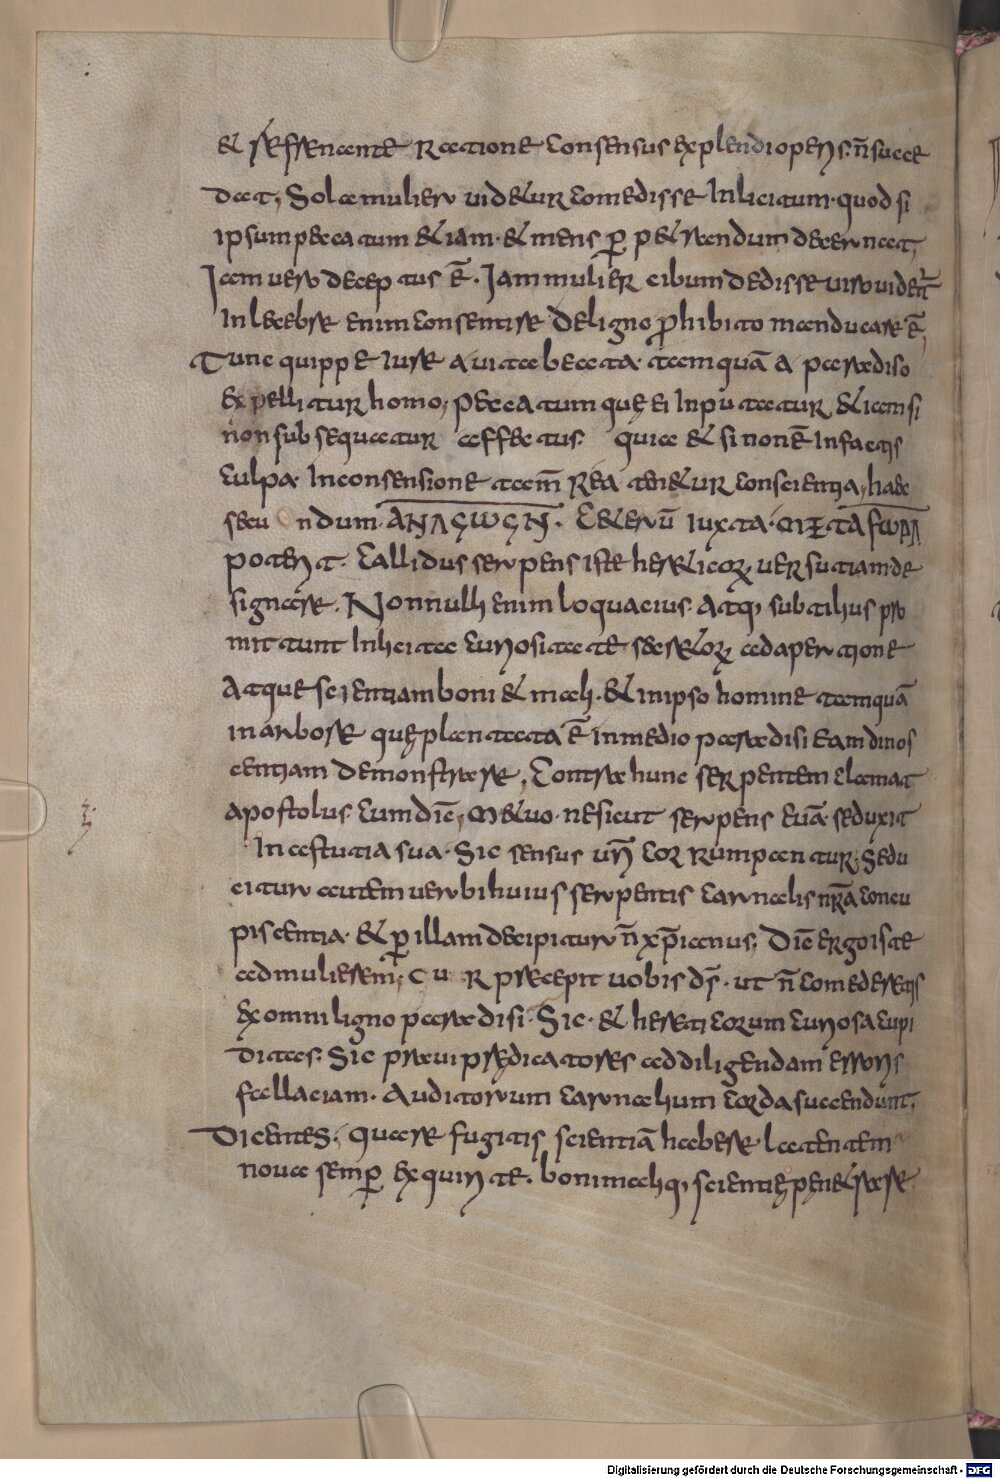 & refrenante ratione consensus explendi operis. n̄ succe
dat, Sola mulier uidetur comedisse Inlicitum. quod si
ipsum peccatum &iam. & mens ꝑ p&randum decernat,
Iam uero deceptus ē. Iam mulier cibum dedisse uiro uident̄
Inlecebre enim consentire De ligno ꝓhibito manducare ē,
Tunc quippe Iure a uita beata tamquā a paradiso
expellitur homo, peccatumquę ei Inputatur & iam si
non subsequatur effectus. quia & si non ē In factis
culpa. In consensione tam̄ Rea ten&ur conscientia, haec
secundum ΑΝΑΓΩΓΗΝ. C&erū iuxta. ΜΕΤΑFΩΡΑ
poterit. callidus serpens iste her&icoꝝ, uersutiam de
signare. Nonnulli enim loquacius. atq, subtilius pro
mittunt Inlicitae curiositate secr&oꝝ adapertione
Atque scientiam boni & mali. & in ipso homine tamquā
in arbore quę plantata ē In medio paradisi eam dinos
centiam demonstrare, contra hunc serpentem clamat
apostolus. cum diē, M&uo. ne sicut serpens euā. seduxit
In astutia sua. Sic sensus urī corrumpantur, Sedu
citur autem uerbi huius serpentis carnalis nr̄a concu
piscentia. & ꝑ illam decipitur n̄ xp̄ianus, Diē ergo iste
ad mulierem, Cur praecepit uobis ds̄. ut n̄ comederetis
ex omni ligno paradisi. Sic. & hereticorum curiosa cupi
ditaes. Sic praui prędicatores ad diligendam erroris
fallaciam. Auditorum carnalium corda succendunt,
Dicentes. Quare fugitis scientiā habere latentem
noua semꝑ exquirite. boni maliq, scientię pen&rare